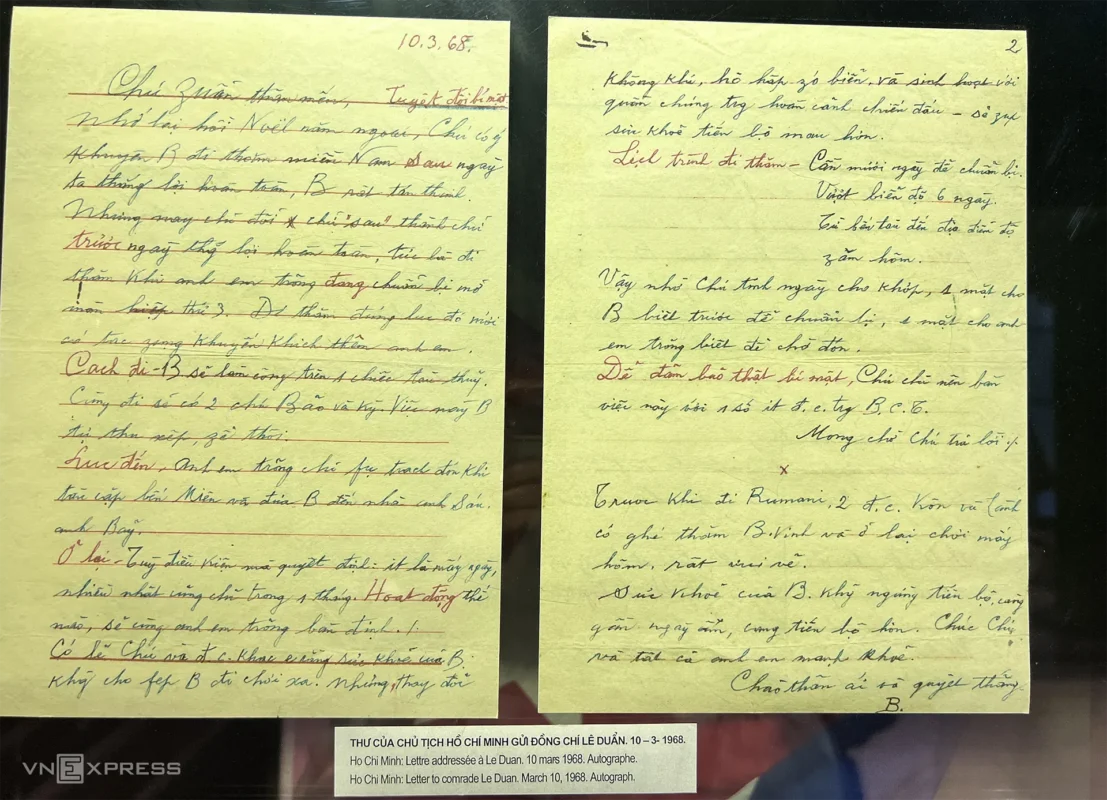 10.3.68.
Chú Zuẩn thân mến, Tuyệt đối bí mật
Nhớ lại hồi Noël năm ngoái, Chú có ý
khuyên B đi thăm miền Nam sau ngày
ta thắng lợi hoàn toàn. B rất tán thành.
Nhưng nay chú đổi chữ "sau" thành chữ
trước ngày thg lợi hoàn toàn, tức là đi
thăm khi anh em trỏng đang chuẩn bị mở
màn hiệp thứ 3. Đi thăm đúng lúc đó mới
có tác zụng khuyến khích thêm anh em.
Cách đi - B sẽ làm công trên 1 chiếc tàu thuỷ.
Cùng đi sẽ có 2 chú Bảo và Kỳ. Việc này B
tự thu xếp, zễ thôi.
Lúc đến, anh em trỏng chỉ fụ trách đón khi
tàu cập bến Miên và đưa B đến nhà anh Sáu,
anh Bảy.
Ở lại - Tuỳ điều kiện mà quyết định: ít là mấy ngày,
nhiều nhất cũng chỉ trong 1 tháng. Hoạt động thế
nào, sẽ cùng anh em trỏng bàn định./.
Có lẽ Chú và đ.c. khác e rằng sức khoẻ của B.
khg cho fép B đi chơi xa. Nhưng, thay đổi
2
không khí, hô hấp zó biển, và sinh hoạt với
quần chúng trg hoàn cảnh chiến đấu - sẽ zúp
sức khoẻ tiến bộ mau hơn.
Lịch trình đi thăm - Cần mười ngày để chuẩn bị.
Vượt biển độ 6 ngày.
Từ bến tàu đến địa điểm độ
zần hôm.
Vậy nhờ Chú tính ngày cho khớp, 1 mặt cho
B biết trước để chuẩn bị, 1 mặt cho anh
em trỏng biết để chờ đón.
Để đảm bảo thật bí mật, Chú chỉ nên bàn
việc này với 1 số ít đ.c. trg B.C.T.
Mong chờ Chú trả lời ./.
x
Trước khi đi Rumani, 2 đ.c. Kôn và
có ghé thăm B. Vinh và ở lại chơi mấy
hôm. rất vui vẻ.
Sức khoẻ của B. khg ngừng tiến bộ, càng
gần ngày ấm, càng tiến bộ hơn. Chúc Chú
và tất cả anh em mạnh khoẻ.
Chào thân ái và quyết thắng
B.
THƯ CỦA CHỦ TỊCH HỒ CHÍ MINH GỬI ĐỒNG CHÍ LÊ DUẨN. 10 – 3- 1968.
Ho Chi Minh: Lettre addressée à Le Duan. 10 mars 1968. Autographe.
Ho Chi Minh: Letter to comrade Le Duan. March 10, 1968. Autograph.
VNEXPRESS